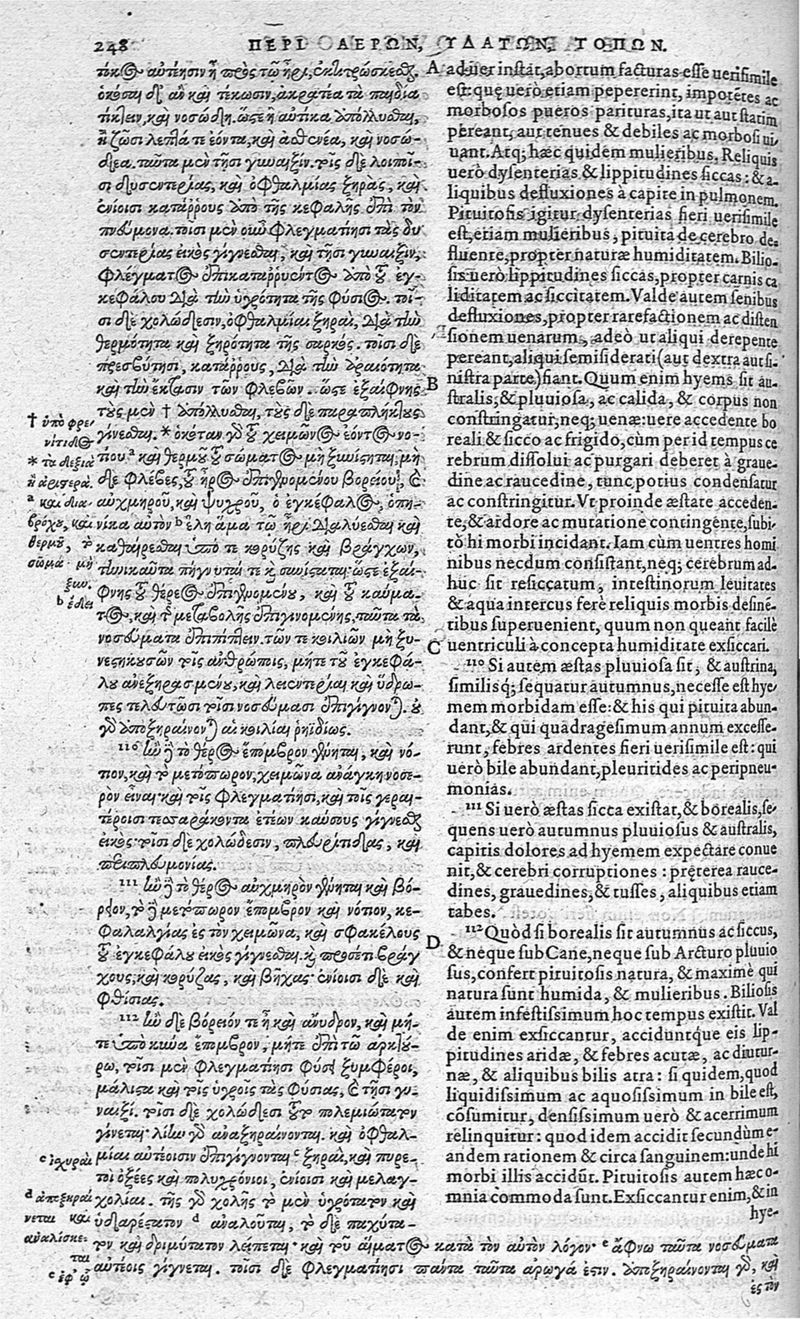 248 ΠΕΡΙ ΑΕΡΩΝ, ΥΔΑΤΩΝ, ΤΟΠΩΝ.
τόκος αὐτέῃσιν ᾖ πρὸς τῷ ἦρι, ἐκτιτρώσκεσθαι,
ὁκόσαι δ' ἂν καὶ τέκωσιν, ἀκρατέα τὰ παιδία
τίκτειν, καὶ νοσώδη. ὥστε ἢ αὐτίκα ἀπόλλυσθαι,
ἢ ζῶσι λεπτά τε ἐόντα, καὶ ἀσθενέα, καὶ νοσώ-
δεα. ταῦτα μὲν τῇσι γυναιξίν. τοῖς δὲ λοιποῖ-
σι δυσεντερίας, καὶ ὀφθαλμίας ξηρὰς, καὶ
ἐνίοισι κατάῤῥους ἀπὸ τῆς κεφαλῆς ἐπὶ τὸν
πλεύμονα. τοῖσι μὲν οὖν φλεγματίῃσι τὰς δυ-
σεντερίας εἰκὸς γίγνεσθαι, καὶ τῇσι γυναιξὶν,
φλέγματος ἐπικαταῤῥυέντος ἀπὸ τοῦ ἐγ-
κεφάλου διὰ τὴν ὑγρότητα τῆς φύσιος. τοῖ-
σι δὲ χολώδεσιν, ὀφθαλμίαι ξηραὶ, διὰ τὴν
θερμότητα καὶ ξηρότητα τῆς σαρκός. τοῖσι δὲ
πρεσβύτῃσι, κατάῤῥους, διὰ τὴν ἀραιότητα
καὶ τὴν ἔκτηξιν τῶν φλεβῶν. ὥστε ἐξαίφνης
τοὺς μὲν † ἀπόλλυσθαι, τοὺς δὲ παραπλήκτους
γίνεσθαι. * ὁκόταν γὰρ τοῦ χειμῶνος ἐόντος νο-
τίου ᵃ καὶ θερμοῦ τοῦ σώματος μὴ ξυνίστηται, μη
δὲ φλέβες, τοῦ ἦρος ἐπιγινομένου βορείου, καὶ
αὐχμηροῦ, καὶ ψυχροῦ, ὁ ἐγκέφαλος, ὁπη-
νίκα αὐτὸν ᵇ ἔλη ἅμα τῷ ἦρι διαλύεσθαι καὶ
καθαίρεσθαι ὑπό τε κορύζης καὶ βράγχων,
τηνικαῦτα πήγνυταί τε καὶ συνίσταται· ὥστε ἐξαί-
φνης τοῦ θέρεος ἐπιγινομένου, καὶ τοῦ καύμα-
τος, καὶ τῆς μεταβολῆς ἐπιγινομένης, ταῦτα τὰ
νοσεύματα ἐπιπίπτειν. τῶν τε κοιλιῶν μὴ ξυ-
νεστηκυσῶν τοῖς ἀνθρώποις, μήτε τοῦ ἐγκεφά-
λου ἀνεξηρασμένου, καὶ λειεντερίαι καὶ ὕδρω-
πες τελευτῶσι τοῖσι νοσεύμασι ἐπιγίγνονται. οὐ
γὰρ ἀποξηραίνονται αἱ κοιλίαι ῥηϊδίως.
¹¹⁰ ἢν δὲ τὸ θέρος ἔπομβρον γένηται, καὶ νό-
τιον, καὶ τὸ μετόπωρον, χειμῶνα ἀνάγκη νοσε-
ρὸν εἶναι· καὶ τοῖς φλεγματίῃσι, καὶ τοῖς γεραι-
τέροισι τεσσαράκοντα ἐτέων καύσους γίγνεσθαι
εἰκὸς· τοῖσι δὲ χολώδεσιν, πλευρίτιδας, καὶ
περιπλευμονίας.
¹¹¹ ἢν δὲ τὸ θέρος αὐχμηρὸν γένηται καὶ βό-
ρειον, τὸ δὲ μετόπωρον ἔπομβρον καὶ νότιον, κε-
φαλαλγίας ἐς τὸν χειμῶνα, καὶ σφακέλους
τοῦ ἐγκεφάλου εἰκὸς γίνεσθαι. καὶ προσέτι βράγ-
χους, καὶ κορύζας, καὶ βῆχας· ἐνίοισι δὲ καὶ
φθίσιας.
¹¹² ἢν δὲ βόρειόν τε ᾖ καὶ ἄνυδρον, καὶ μή-
τε ὑπὸ κύνα ἔπομβρον, μήτε ἐπὶ τῷ ἀρκτού-
ρῳ, τοῖσι μὲν φλεγματίῃσι φύσει ξυμφέρει,
μάλιστα καὶ τοῖς ὑγροῖς τὰς φύσιας, καὶ τῇσι γυ-
ναιξί. τοῖσι δὲ χολώδεσι τοῦτο πολεμιώτατον
γίνεται· λίην γὰρ ἀναξηραίνονται. καὶ ὀφθαλ-
μίαι αὐτέοισιν ἐπιγίγνονται ᶜ ξηραὶ, καὶ πυρε-
τοὶ ὀξέες καὶ πολυχρόνιοι, ἐνίοισι καὶ μελαγ-
χολίαι. τῆς γὰρ χολῆς τὸ μὲν ὑγρότατον καὶ
ὑδαρέστατον ᵈ ἀναλοῦται, τὸ δὲ παχύτα-
τον καὶ δριμύτατον λείπεται· καὶ τοῦ αἵματος κατὰ τὸν αὐτὸν λόγον· ᵉ ἄφνω ταῦτα νοσεύματα
αὐτέοις γίγνεται. τοῖσι δὲ φλεγματίῃσι πάντα ταῦτα ἀρωγά ἐστιν. ἀποξηραίνονται γὰρ, καὶ
ἐς τὸν
† ὑπὸ φρε-
νίτιδος
* τὰ δεξιὰ
ἢ ἀριστερὰ.
ᵃ καὶ δια-
βρόχου, καὶ
θερμοῦ, τὸ
σῶμα μὴ
ξυν.
ᵇ ἔδει
ᶜ ἰσχυραὶ
ᵈ ἀπεξηραί
νεται καὶ
ἀναλίσκε-
ται
ᵉ ἐφ' ᾧ
A
B
C
D
ad uer instat, abortum facturas esse uerisimile
est: quę uerò etiam pepererint, impotẽtes ac
morbosos pueros parituras, ita ut aut statim
pereant, aut tenues & debiles ac morbosi ui
uant. Atq; hæc quidem mulieribus. Reliquis
uerò dysenterias & lippitudines siccas: & a-
liquibus defluxiones à capite in pulmonem.
Pituitosis igitur dysenterias fieri uerisimile
est, etiam mulieribus, pituita de cerebro de-
fluente, propter naturæ humiditatem. Bilio-
sis uerò lippitudines siccas, propter carnis ca
liditatem ac siccitatem. Valde autem senibus
defluxiones, propter rarefactionem ac disten
sionem uenarum, adeò ut aliqui derepente
pereant, aliqui semisiderati (aut dextra aut si-
nistra parte) fiant. Quum enim hyems sit au-
stralis, & pluuiosa, ac calida, & corpus non
constringatur, neq; uenæ: uere accedente bo
reali & sicco ac frigido, cùm per id tempus ce
rebrum dissolui ac purgari deberet à graue-
dine ac raucedine, tunc potius condensatur
ac constringitur. Vt proinde æstate acceden-
te, & ardore ac mutatione contingente, subi-
tò hi morbi incidant. Iam cùm uentres homi
nibus necdum consistant, neq; cerebrum ad-
huc sit resiccatum, intestinorum leuitates
& aqua intercus ferè reliquis morbis desinẽ-
tibus superuenient, quum non queant facilè
uentriculi à concepta humiditate exsiccari.
¹¹⁰ Si autem æstas pluuiosa sit, & austrina,
similisq; sequatur autumnus, necesse est hye
mem morbidam esse: & his qui pituita abun-
dant, & qui quadragesimum annum excesse-
runt, febres ardentes fieri uerisimile est: qui
uerò bile abundant, pleuritides ac peripneu-
monias.
¹¹¹ Si uerò æstas sicca existat, & borealis, se-
quens uerò autumnus pluuiosus & australis,
capitis dolores ad hyemem expectare conue
nit, & cerebri corruptiones: pręterea rauce-
dines, grauedines, & tusses, aliquibus etiam
tabes.
¹¹² Quòd si borealis sit autumnus ac siccus,
& neque sub Cane, neque sub Arcturo pluuio
sus, confert pituitosis natura, & maximè qui
natura sunt humida, & mulieribus. Biliosis
autem infestissimum hoc tempus existit. Val
de enim exsiccantur, acciduntque eis lip-
pitudines aridæ, & febres acutæ, ac diutur-
næ, & aliquibus bilis atra: si quidem, quod
liquidissimum ac aquosissimum in bile est,
cõsumitur, densissimum uerò & acerrimum
relinquitur: quod idem accidit secundùm e-
andem rationem & circa sanguinem: unde hi
morbi illis accidũt. Pituitosis autem hæc o-
mnia commoda sunt. Exsiccantur enim, & in
hye-